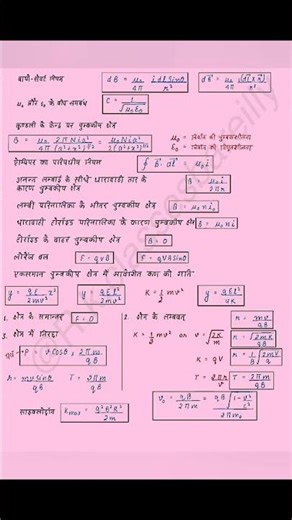 बायो-सेवर्ट नियम dB = μ₀/4π i dl sinθ/r² dB⃗ = μ₀/4π i(dl⃗ × r⃗)/r³
μ₀ और ε₀ के बीच सम्बन्ध C = 1/√μ₀ε₀
कुण्डली के केन्द्र पर चुम्बकीय क्षेत्र
B = μ₀/4π 2πNia²/(a²+x²)^3/2 = μ₀Nia²/2(a²+x²)^3/2
μ₀ = निर्वात की चुम्बकशीलता
ε₀ = निर्वात की विद्युतशीलता
ऐम्पियर का परिपथीय नियम ∮ B⃗. dl⃗ = μ₀i
अनन्त लम्बाई के सीधे धारावाही तार के
कारण चुम्बकीय क्षेत्र B = μ₀i/2πr
लम्बी परिनालिका के भीतर चुम्बकीय क्षेत्र B = μ₀ni
धारावाही टोरॉइड परिनालिका के कारण चुम्बकीय क्षेत्र B = μ₀ni
टोरॉइड के बाहर चुम्बकीय क्षेत्र B = 0
लॉरेंज बल F = qvB F = qVB sinθ
एकसमान चुम्बकीय क्षेत्र में आवेशित कण की गति
y = qE/2mv² x² y = qEl²/2mv² K = ½ mv² y = qEl²/4K
1. क्षेत्र के समान्तर F = 0 2. क्षेत्र के लम्बवत् r = mv/qB
3. क्षेत्र में तिरछा K = ½ mv² or v = √2K/m r = √2mK/qB
P = v cosθ × 2πm/qB K = qV r = 1/B √2mV/q
r = mv sinθ/qB T = 2πm/qB T = 2πr/v T = 2πm/qB
साइक्लोट्रॉन Kmax = q²B²R²/2m